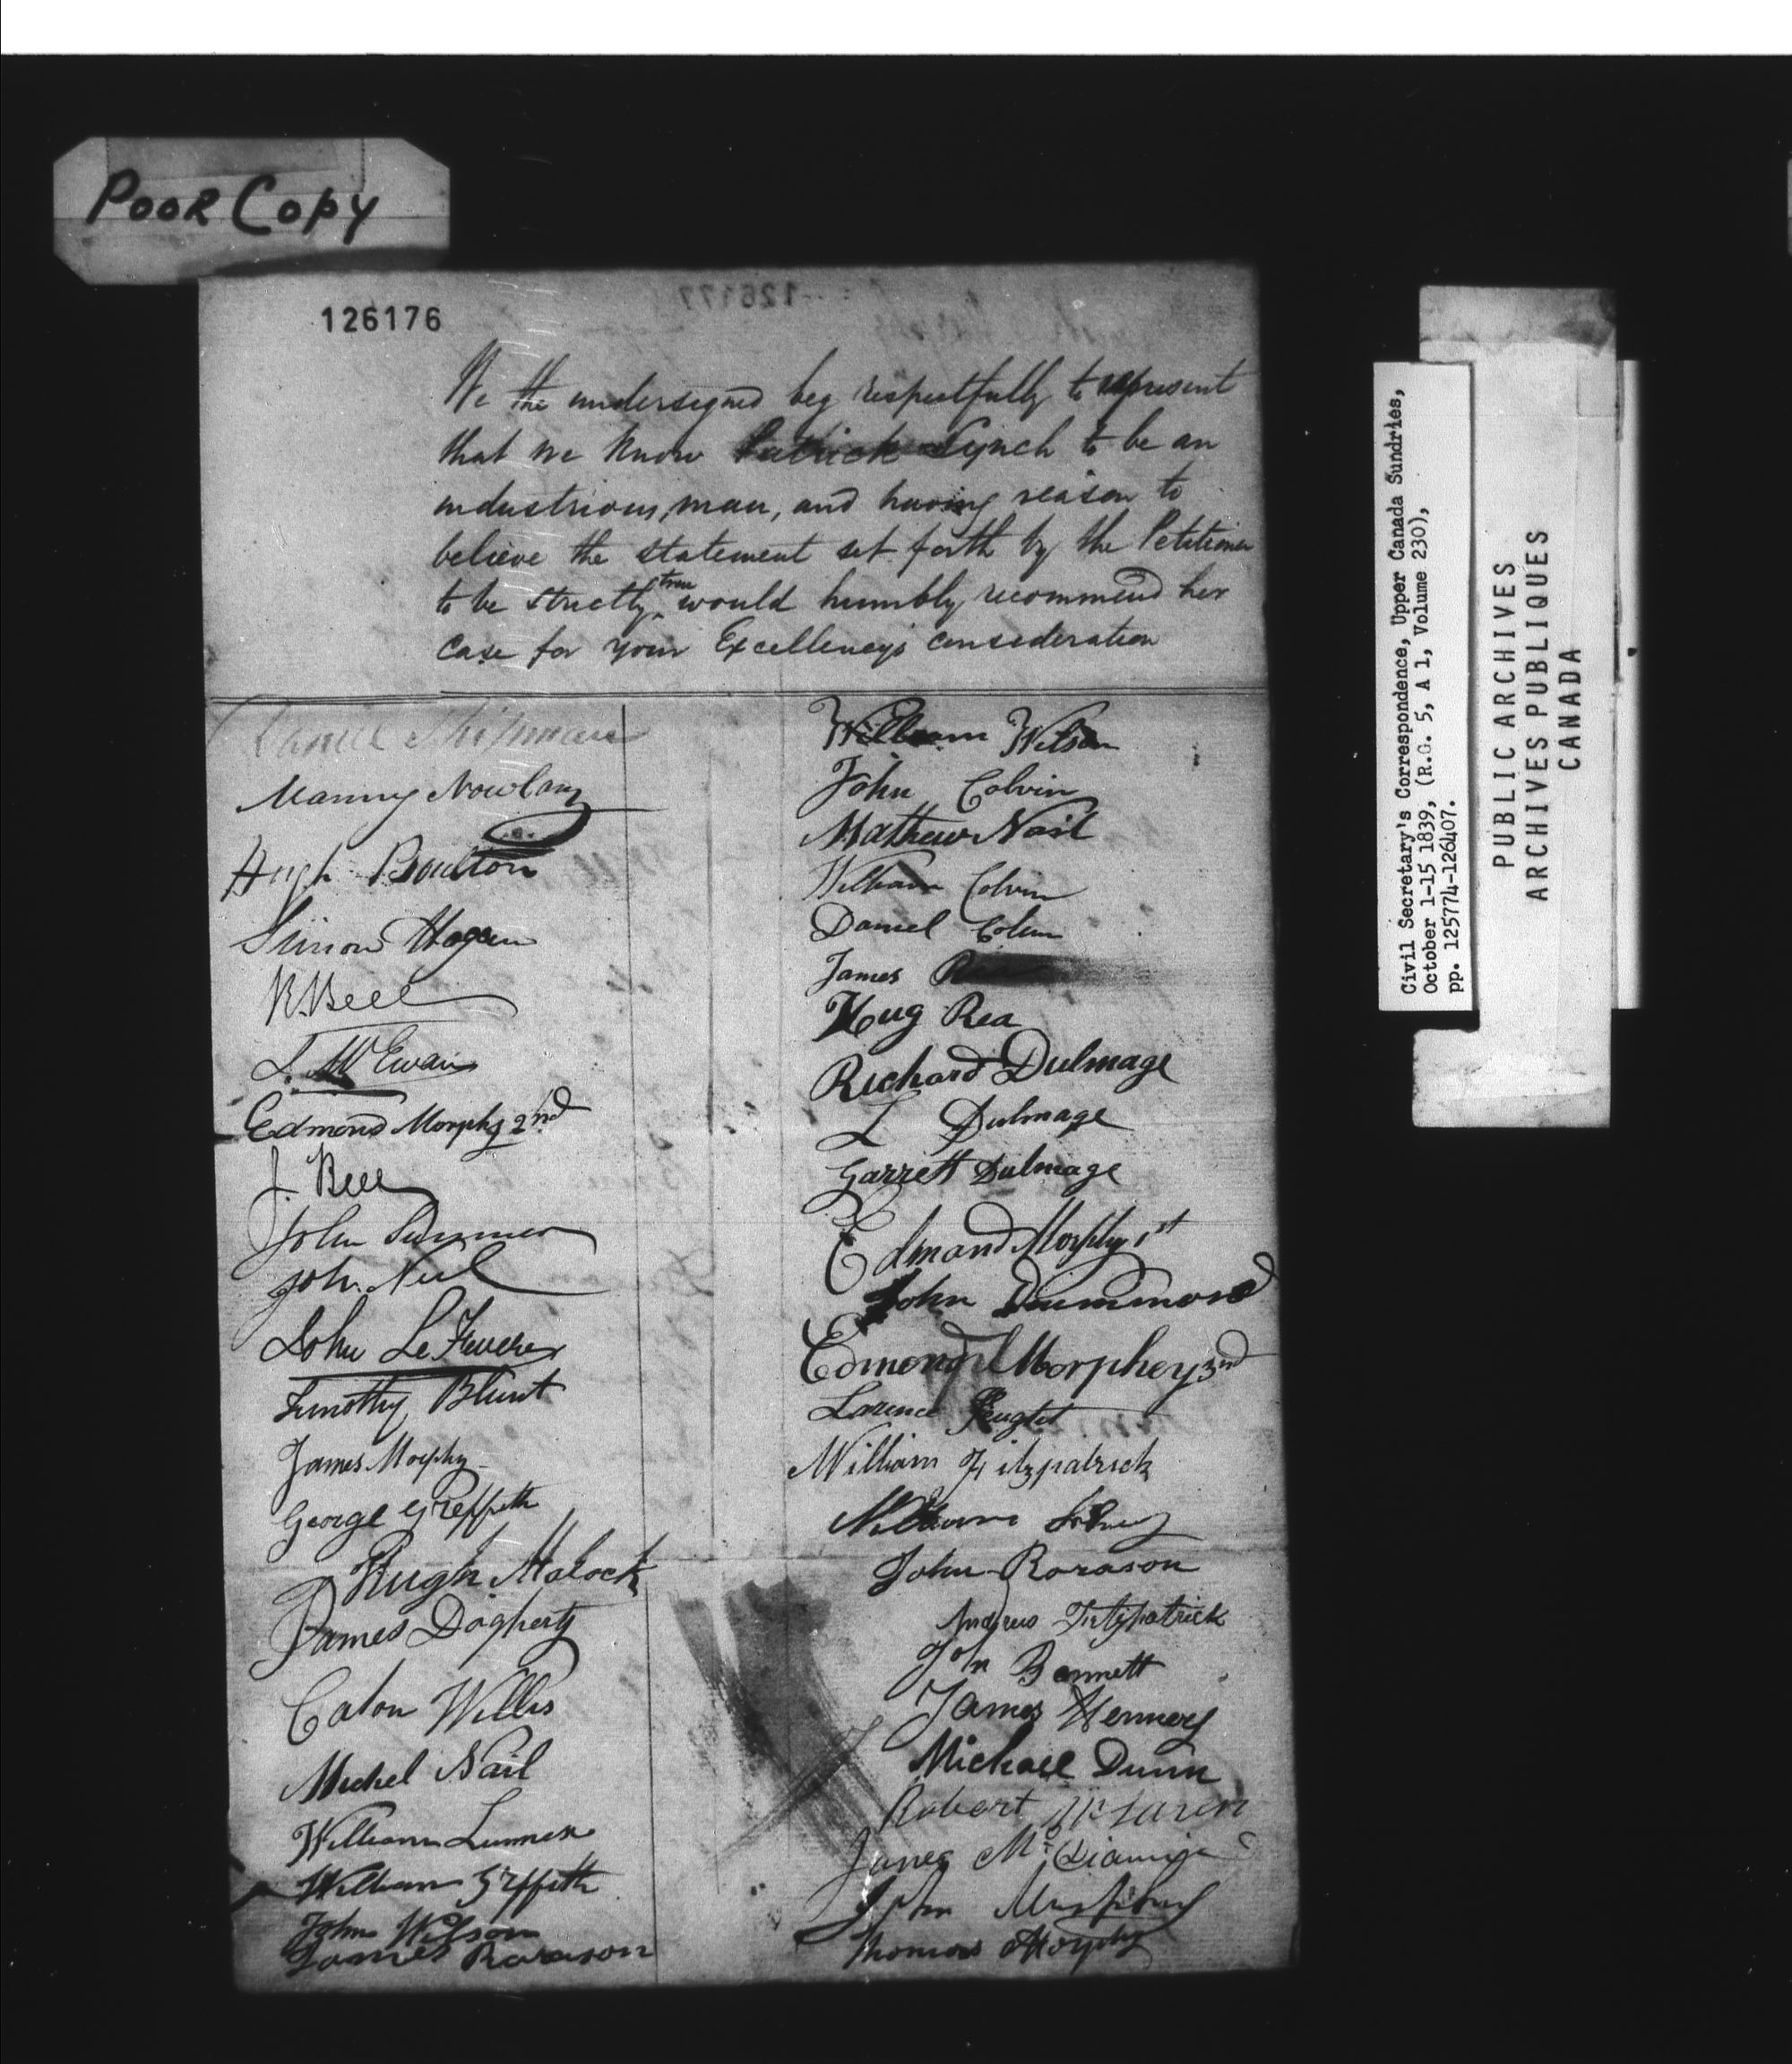 POOR COPY
126176
126177
We the undersigned beg respectfully to represent
that we know Patrick Lynch to be an
industrious, man, and having reason to
believe the statement set forth by the Petitioner
to be strictly true would humbly recommend her
case for your Excellency's consideration
Daniel Shipman
Manny Nowlan
Hugh Boulton
Simon Hogan
R. Bell
J. McEwan
Edmond Morphy 2nd
J. Bell
John Sumner
John Neil
John LeFevere
Timothy Blunt
James Morphy
George Greffith
Hugh Malock
James Dogherty
Caton Willis
Michel Nail
William Lummox
William Griffith
John Wilson
James Rorason
William Wilson
John Colvin
Mathew Nail
William Colvin
Daniel Colvin
James
Hug Rea
Richard Dulmage
L Dulmage
Garrett Dulmage
Edmond Morphy 1st
John Drummond
Edmond Morphey 3rd
Larence
William Fitzpatrick
William
John Rorason
Andrew Fitzpatrick
John Bennett
James Hennery
Michael Dunn
Robert McLaren
James McDiarmid
John Murphy
Thomas Morphy
Civil Secretary's Correspondence, Upper Canada Sundries,
October 1-15 1839, (R.G. 5, A 1, Volume 230),
pp. 125774-126407.
PUBLIC ARCHIVES
ARCHIVES PUBLIQUES
CANADA